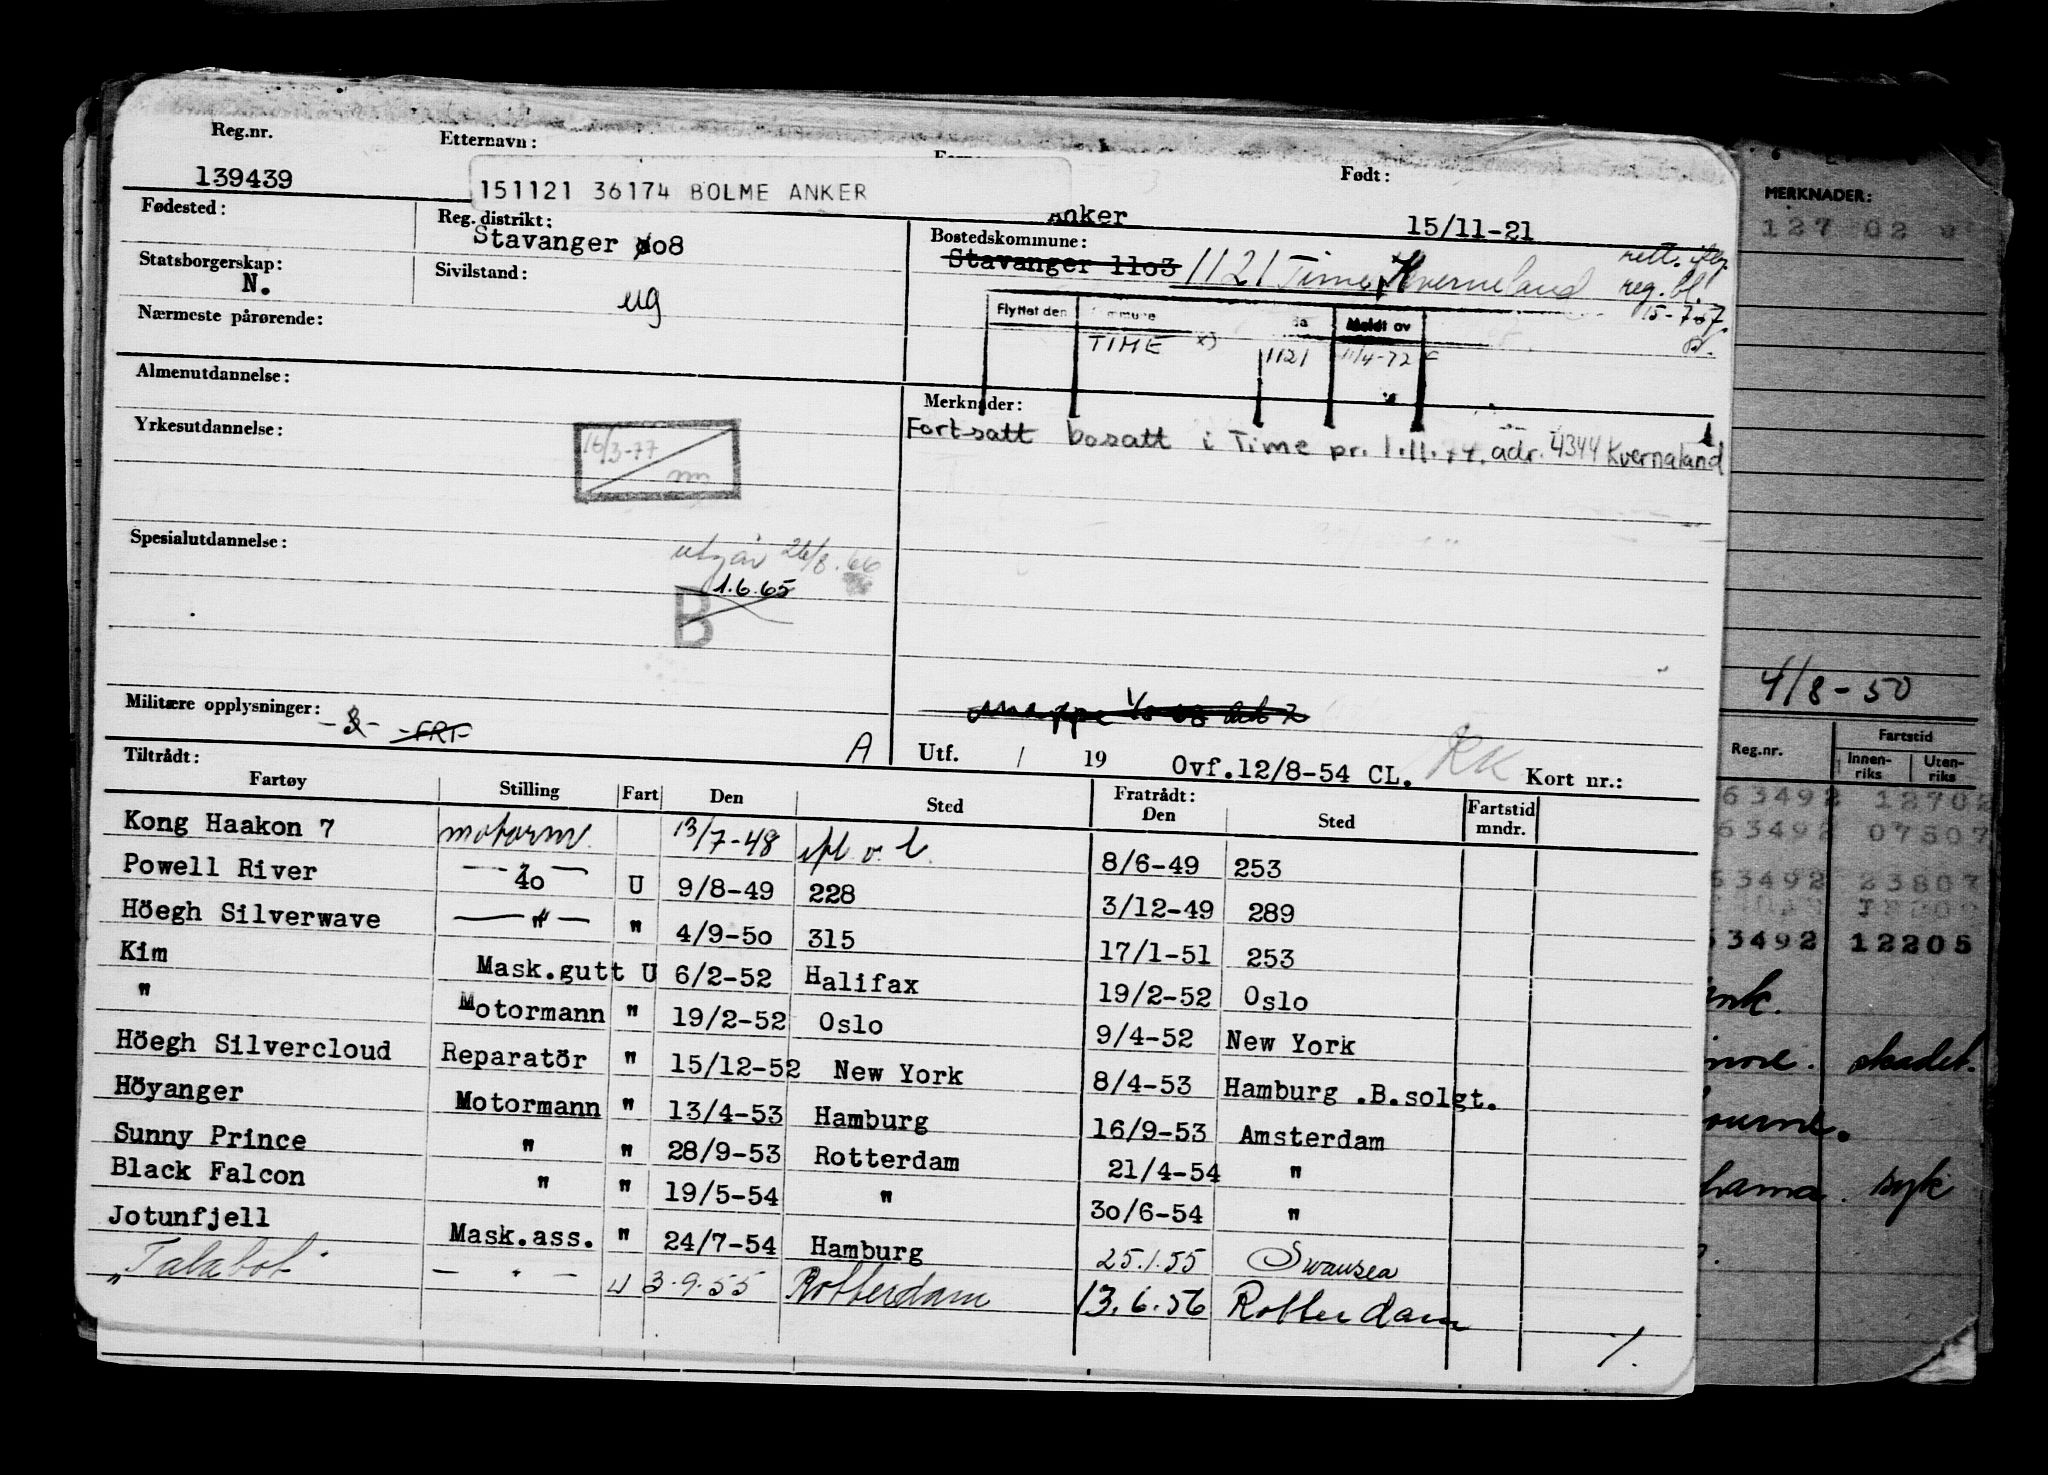 Reg.nr. Etternavn: Født: MERKNADER:
139439 151121 36174 BOLME ANKER Anker 15/11-21 127 02
Fødested: Reg. distrikt: Bostedskommune:
Stavanger øo8 Stavanger 11o3 1121 Time, Kverneland rett. iflg.
Statsborgerskap: Sivilstand: reg. bl.
N. ug 15-7-57.
Nærmeste pårørende: Flyttet den Meldt av
TIME x) 1121 11/4-72
Almenutdannelse: Merknader:
Yrkesutdannelse: Fortsatt bosatt i Time pr. 1.11.74. adr. 4344 Kvernaland
16/3-77
Spesialutdannelse: utgår 26/8.66
B 1.6.65
4/8-50
Militære opplysninger: -&- -FRF-
A Utf. / 19 Ovf.12/8-54 CL. RK Kort nr.:
Reg.nr. Fartstid
Innen-riks Uten-riks
Tiltrådt: Fratrådt: Fartstid
Fartøy Stilling Fart Den Sted Den Sted mndr.
Kong Haakon 7 motorm. 13/7-48 ifl. o. l. 8/6-49 253
Powell River 4o U 9/8-49 228 3/12-49 289
Höegh Silverwave —"— " 4/9-5o 315 17/1-51 253
Kim Mask.gutt U 6/2-52 Halifax 19/2-52 Oslo
" Motormann " 19/2-52 Oslo 9/4-52 New York
Höegh Silvercloud Reparatör " 15/12-52 New York 8/4-53 Hamburg .B.solgt.
Höyanger Motormann " 13/4-53 Hamburg 16/9-53 Amsterdam
Sunny Prince " " 28/9-53 Rotterdam 21/4-54 "
Black Falcon " " 19/5-54 " 3o/6-54 "
Jotunfjell Mask.ass. " 24/7-54 Hamburg 25.1.55 Swansea
"Talabot — " — U 3.9.55 Rotterdam 13.6.56 Rotterdam
%
63492 12702
63492 07507
63492 23807
63492 12205
skadet.
syk